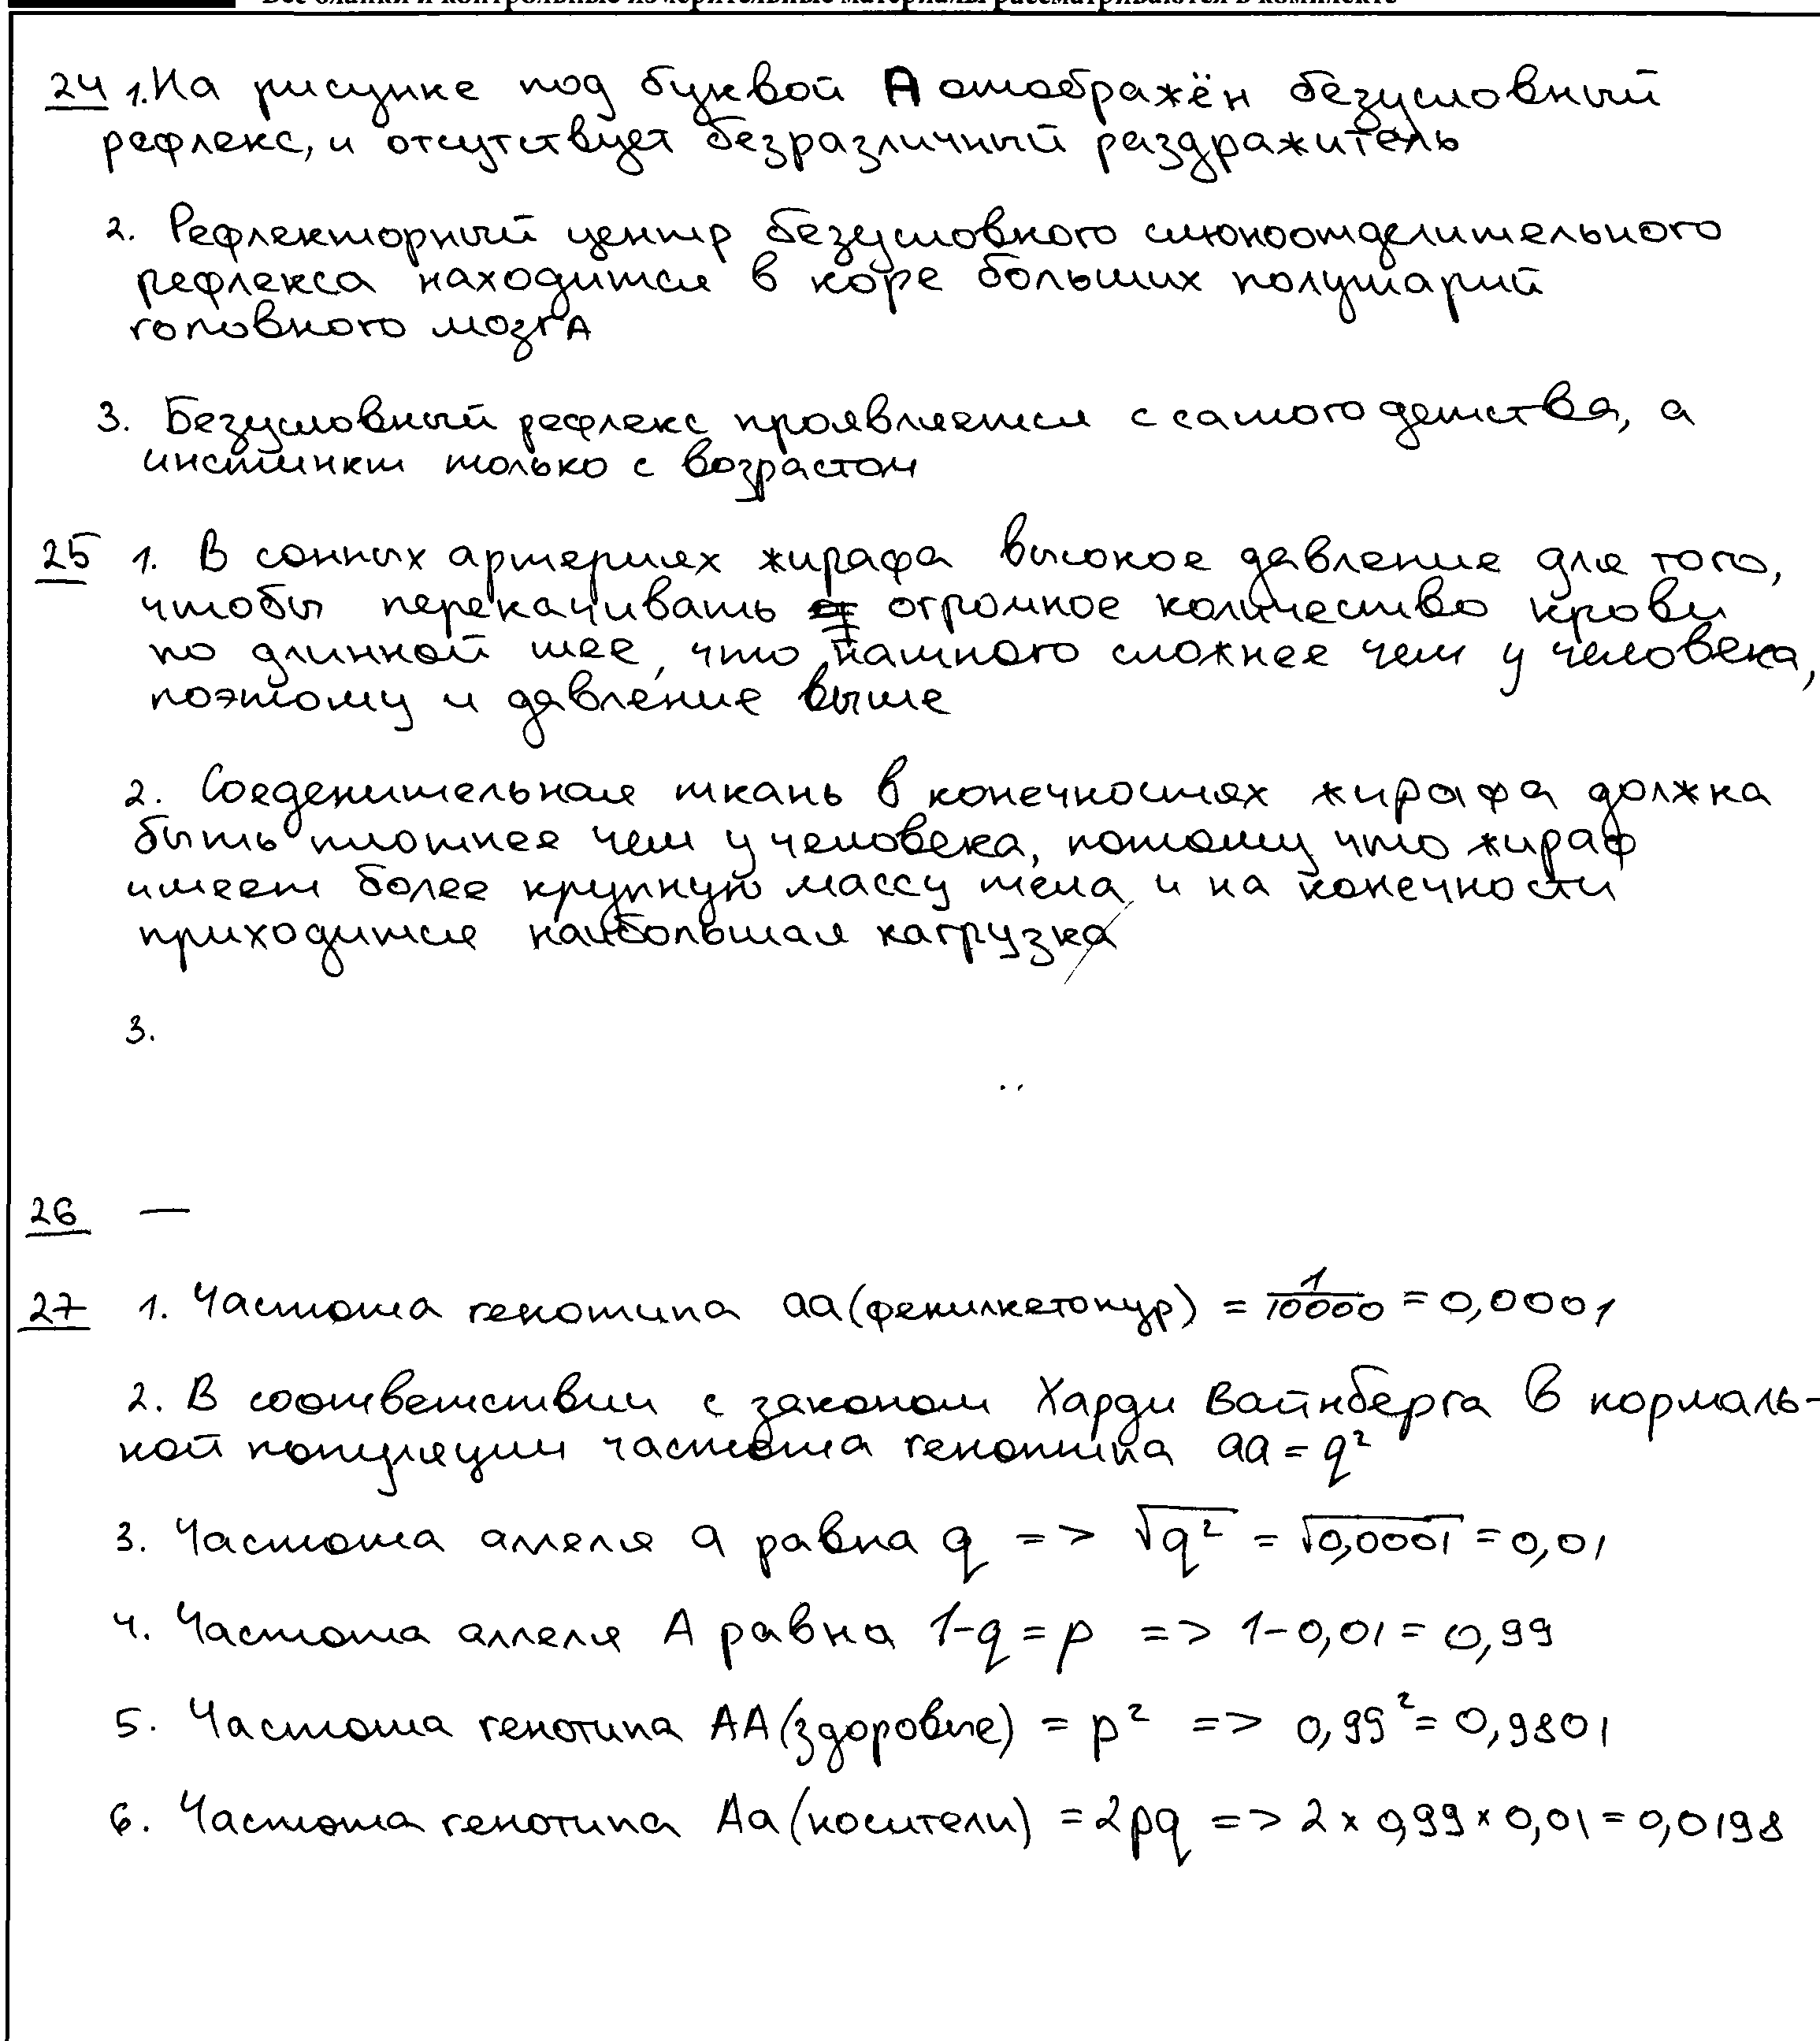 Все бланки и контрольные измерительные материалы рассматриваются в комплекте
24 1. На рисунке под буквой А отображён безусловный
рефлекс, и отсутствует безразличный раздражитель
2. Рефлекторный центр безусловного слюноотделительного
рефлекса находится в коре больших полушарий
головного мозга
3. Безусловный рефлекс проявляется с самого детства, а
инстинкт только с возрастом
25 1. В сонных артериях жирафа высокое давление для того,
чтобы перекачивать огромное количество крови
по длинной шее, что намного сложнее чем у человека,
поэтому и давление выше
2. Соеденительная ткань в конечностях жирафа должна
быть плотнее чем у человека, потому что жираф
имеет более крупную массу тела и на конечности
приходится наибольшая нагрузка
3.
26 —
27 1. Частота генотипа aa (фенилкетонур) = 1/10000 = 0,0001
2. В соответствии с законом Харди Вайнберга в нормаль-
ной популяции частота генотипа aa = q²
3. Частота аллеля a равна q => √q² = √0,0001 = 0,01
4. Частота аллеля A равна 1-q = p => 1-0,01 = 0,99
5. Частота генотипа AA (здоровые) = p² => 0,99² = 0,9801
6. Частота генотипа Aa (носители) = 2pq => 2 × 0,99 × 0,01 = 0,0198